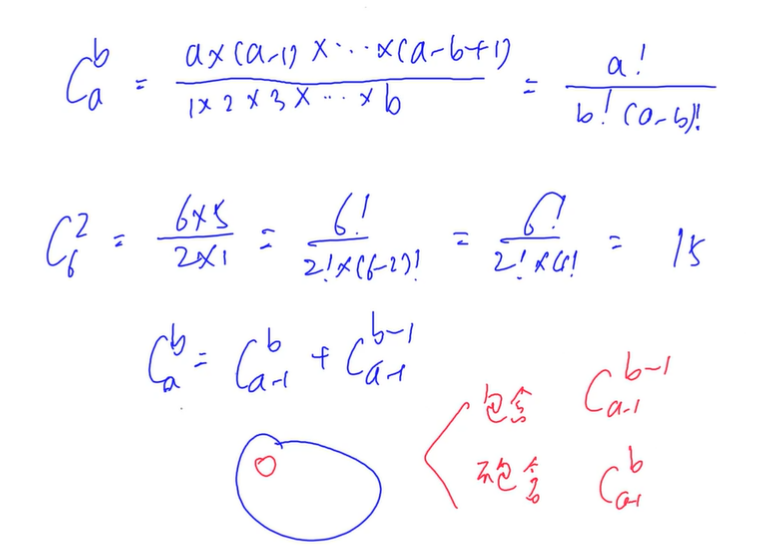 C_a^b = \frac{a×(a-1)×···×(a-b+1)}{1×2×3×···×b} = \frac{a!}{b!(a-b)!}
C_6^2 = \frac{6×5}{2×1} = \frac{6!}{2!×(6-2)!} = \frac{6!}{2!×4!} = 15
C_a^b = C_{a-1}^b + C_{a-1}^{b-1}
包含 C_{a-1}^{b-1}
不包含 C_{a-1}^b